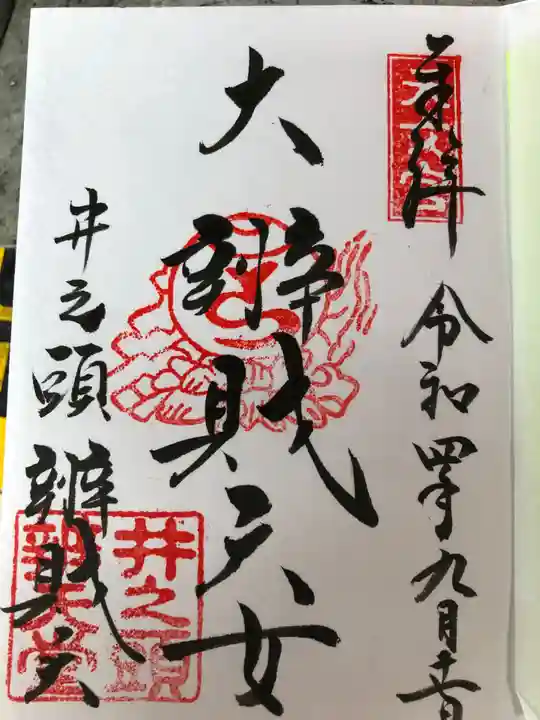 奉拝
令和四年九月十六日
大辨財天女
井之頭
辨財天
井之頭
辨天堂